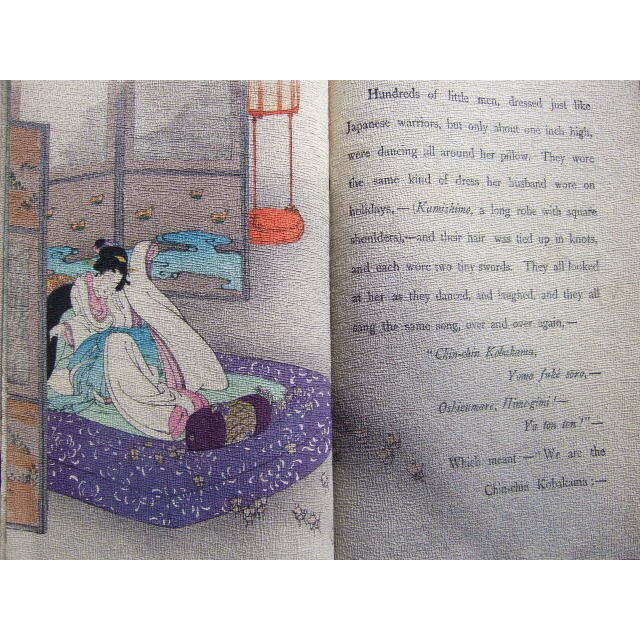 Hundreds of little men, dressed just like
Japanese warriors, but only about one inch high,
were dancing all around her pillow. They wore
the same kind of dress her husband wore on
holidays,—(Kamishimo, a long robe with square
shoulders),—and their hair was tied up in knots,
and each wore two tiny swords. They all looked
at her as they danced, and laughed, and they all
sang the same song, over and over again,—
"Chin-chin Kobakama,
Yomo fuké soro,—
Oshizumare, Hime-gimi!—
Ya ton ton!"—
Which meant:—"We are the
Chin-chin Kobakama;—